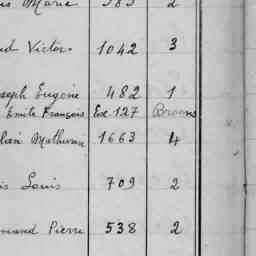 Marie 383 2
Victor 1042 3
Joseph Eugène 482 1
Emile François Ex. 127
Mathurin 1663 4
Louis 709 2
Pierre 538 2